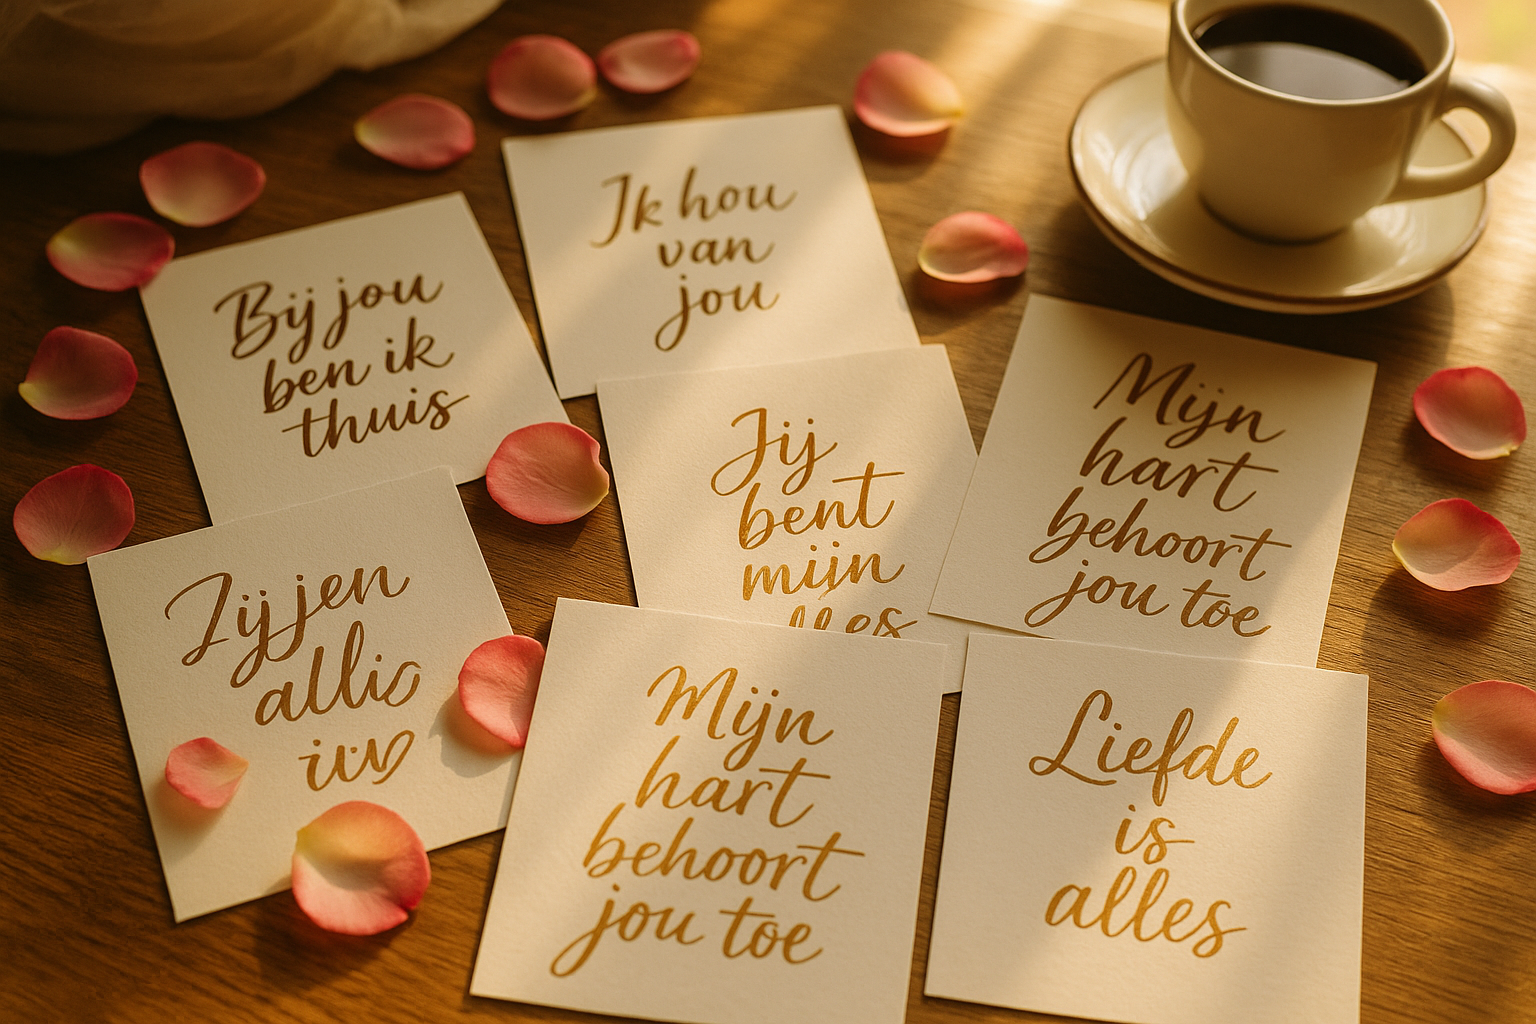 Ik hou
van
jou
Bij jou
ben ik
thuis
Jij
bent
mijn
alles
Mijn
hart
behoort
jou toe
Mijn
hart
behoort
jou toe
Liefde
is
alles